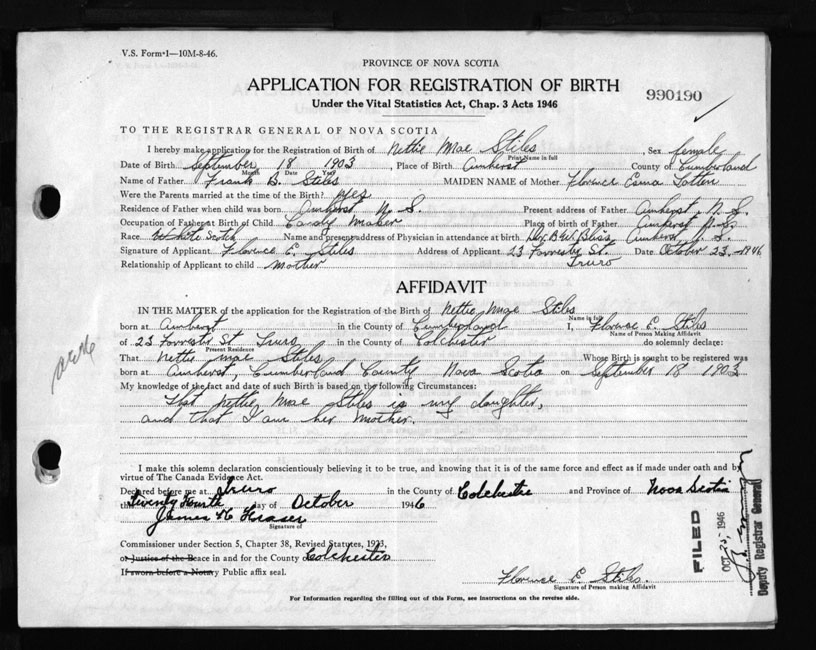 V.S. Form 1—10M-8-46.
PROVINCE OF NOVA SCOTIA
APPLICATION FOR REGISTRATION OF BIRTH
990190
Under the Vital Statistics Act, Chap. 3 Acts 1946
TO THE REGISTRAR GENERAL OF NOVA SCOTIA
I hereby make application for the Registration of Birth of Nettie Mae Stiles, Sex female
Print Name in full
Date of Birth September 18 1903, Place of Birth Amherst County of Cumberland
Month Date Year
Name of Father Frank B. Stiles MAIDEN NAME of Mother Florence Esma Totten
Were the Parents married at the time of the Birth? yes
Residence of Father when child was born Amherst N.S. Present address of Father Amherst N.S.
Occupation of Father at Birth of Child Candy Maker Place of birth of Father Amherst N.S.
Race White Scotch Name and present address of Physician in attendance at birth Dr. Bliss Amherst N.S.
Signature of Applicant Florence E. Stiles Address of Applicant 23 Forrester St. Date October 23 1946
Relationship of Applicant to child Mother Truro
AFFIDAVIT
IN THE MATTER of the application for the Registration of Birth of Nettie Mae Stiles
Name in full
born at Amherst in the County of Cumberland I, Florence E. Stiles
Name of Person Making Affidavit
of 23 Forrester St Truro in the County of Colchester do solemnly declare:
Present Residence
That Nettie Mae Stiles Whose Birth is sought to be registered was
born at Amherst, Cumberland County Nova Scotia on September 18 1903
My knowledge of the fact and date of such Birth is based on the following Circumstances:
That Nettie Mae Stiles is my daughter,
and that I am her Mother.
I make this solemn declaration conscientiously believing it to be true, and knowing that it is of the same force and effect as if made under oath and by
virtue of The Canada Evidence Act.
Declared before me at Truro in the County of Colchester and Province of Nova Scotia
this Twenty Fourth day of October 1946
James H Fraser
Signature of
Commissioner under Section 5, Chapter 38, Revised Statutes, 1923,
or Justice of the Peace in and for the County of Colchester
If sworn before a Notary Public affix seal.
Florence E. Stiles.
Signature of Person making Affidavit
For Information regarding the filling out of this Form, see instructions on the reverse side.
FILED
OCT 25 1946
Deputy Registrar General